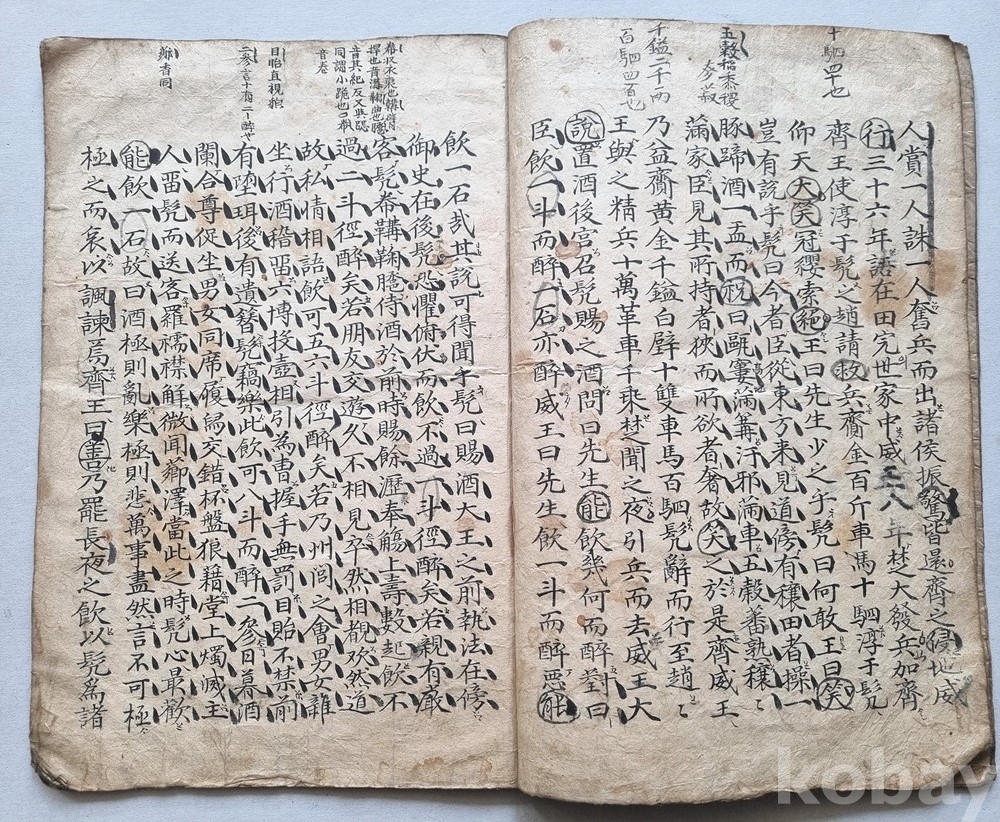 十駟四十也
五穀稻黍稷
麥菽
千鎰二千兩
百駟四百也
人賞一人誅一人奮兵而出諸侯振驚皆還齊之侵地威
行三十六年語在田完世家中威王八年楚之大發兵加齊
齊王使淳于髡之趙請救兵齎金百斤車馬十駟淳于髡
仰天大笑冠纓索絶王曰先生少之乎髡曰何敢王曰笑
豈有說乎髡曰今者臣從東方来見道傍有穰田者操一
豚蹄酒一盂而祝曰甌窶滿篝汙邪滿車五穀蕃熟穰〻
滿家臣見其所持者狹而所欲者奢故笑之於是齊威王
乃益齎黃金千鎰白璧十雙車馬百駟髡辭而行至趙〻
王與之精兵十萬革車千乘楚聞之夜引兵而去威王大
說置酒後宮召髡賜之酒問曰先生能飲幾何而醉對曰
臣飲一斗而醉一石亦醉威王曰先生飲一斗而醉惡能
帣收衣袖也韝臂
捍也音溝鞠曲也䠆
音其紀反又與跽
同謂小跪也
音卷
目眙直視貌
二參言十有二醉也
薌香同
飲一石哉其說可得聞乎髡曰賜酒大王之前執法在傍
御史在後髡恐懼俯伏而飲不過一斗徑醉矣若親有嚴
客髡帣韝鞠䠆侍酒於前時賜餘瀝奉觴上壽數起飲不
過二斗徑醉矣若朋友交遊久不相見卒然相覩欢然道
故私情相語飲可五六斗徑醉矣若乃州閭之會男女雜
坐行酒稽留六博投壺相引為曹握手無罰目眙不禁前
有墮珥後有遺簪髡竊樂此飲可八斗而醉二參日暮酒
闌合尊促坐男女同席履舃交錯杯盤狼籍堂上燭滅主
人留髡而送客羅襦襟解微聞薌澤當此之時髡心最歡
能飲一石故曰酒極則亂樂極則悲萬事盡然言不可極
極之而衰以諷諫焉齊王曰善乃罷長夜之飲以髡為諸
kobay